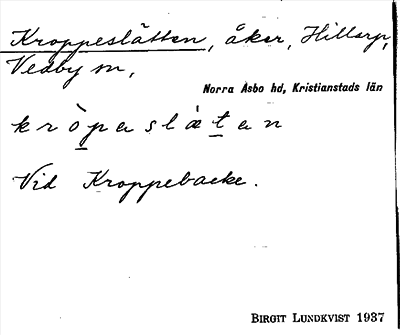 Kroppeslätten, åker, Hillarp,
Vedby sn,
Norra Åsbo hd, Kristianstads län
kròpaslætan
Vid Kroppebacke.
BIRGIT LUNDKVIST 1937